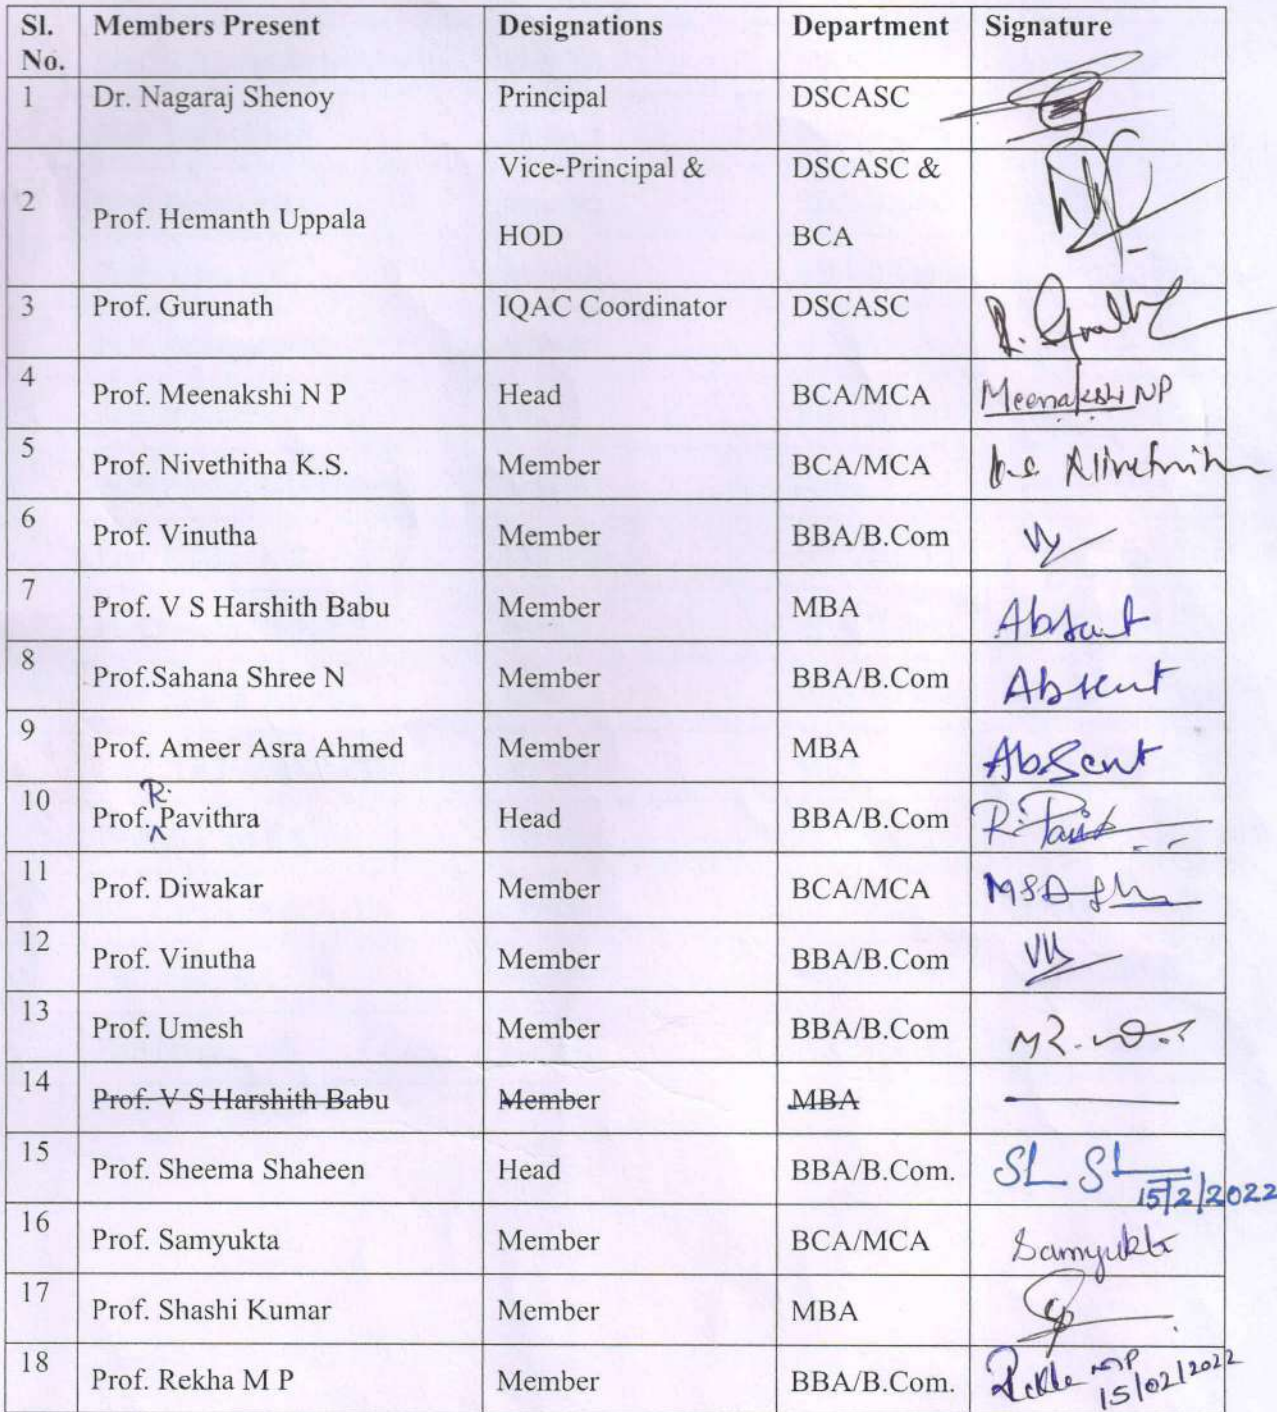 Sl. No. Members Present Designations Department Signature
1 Dr. Nagaraj Shenoy Principal DSCASC
2 Prof. Hemanth Uppala Vice-Principal & HOD DSCASC & BCA
3 Prof. Gurunath IQAC Coordinator DSCASC
4 Prof. Meenakshi N P Head BCA/MCA Meenakshi NP
5 Prof. Nivethitha K.S. Member BCA/MCA
6 Prof. Vinutha Member BBA/B.Com
7 Prof. V S Harshith Babu Member MBA Absent
8 Prof.Sahana Shree N Member BBA/B.Com Absent
9 Prof. Ameer Asra Ahmed Member MBA Absent
10 Prof. R. Pavithra Head BBA/B.Com
11 Prof. Diwakar Member BCA/MCA
12 Prof. Vinutha Member BBA/B.Com
13 Prof. Umesh Member BBA/B.Com
14 Prof. V S Harshith Babu Member MBA
15 Prof. Sheema Shaheen Head BBA/B.Com. 15/2/2022
16 Prof. Samyukta Member BCA/MCA Samyukta
17 Prof. Shashi Kumar Member MBA
18 Prof. Rekha M P Member BBA/B.Com. Rekha MP 15/02/2022